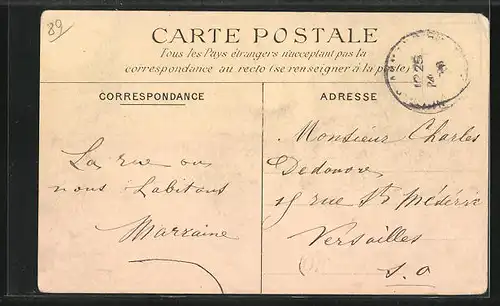 89
CARTE POSTALE
Tous les Pays étrangers n'acceptant pas la
correspondance au recto (se renseigner à la poste)
CORRESPONDANCE
ADRESSE
La rue ou
nous habitons
Marraine
Monsieur Charles
Dedouvre
15 rue St Médéric
Versailles
S. O